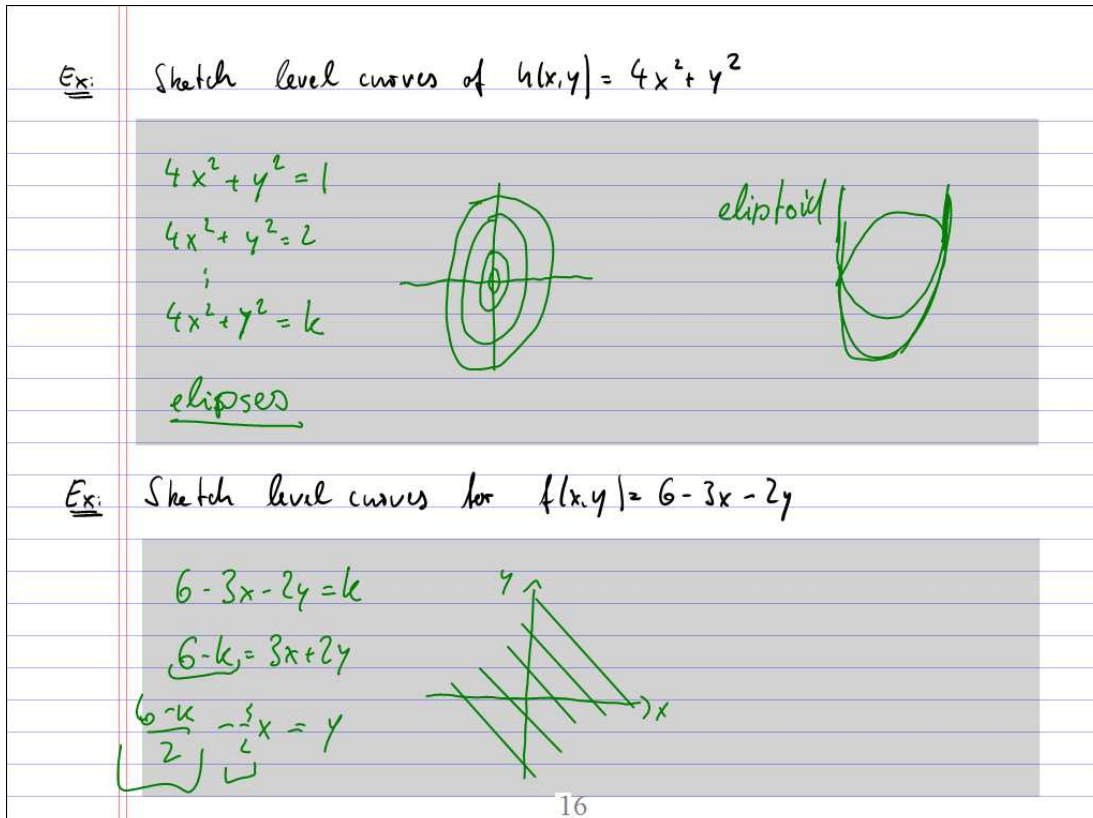 Ex: Sketch level curves of h(x,y) = 4x² + y²
4x² + y² = 1
4x² + y² = 2
⋮
4x² + y² = k
elipses
eliptoid
Ex: Sketch level curves for f(x,y) = 6 - 3x - 2y
6 - 3x - 2y = k
6 - k = 3x + 2y
(6 - k)/2 - 3/2 x = y
y
x
16